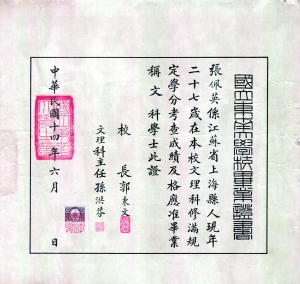 國立東南大學校畢業證書
張佩英係江蘇省上海縣人現年
二十七歲在本校文理科修滿規
定學分考查成績及格應准畢業
稱文 科學士此證
校 長郭秉文
文理科主任孫洪芬
中華民國十四年六月 日